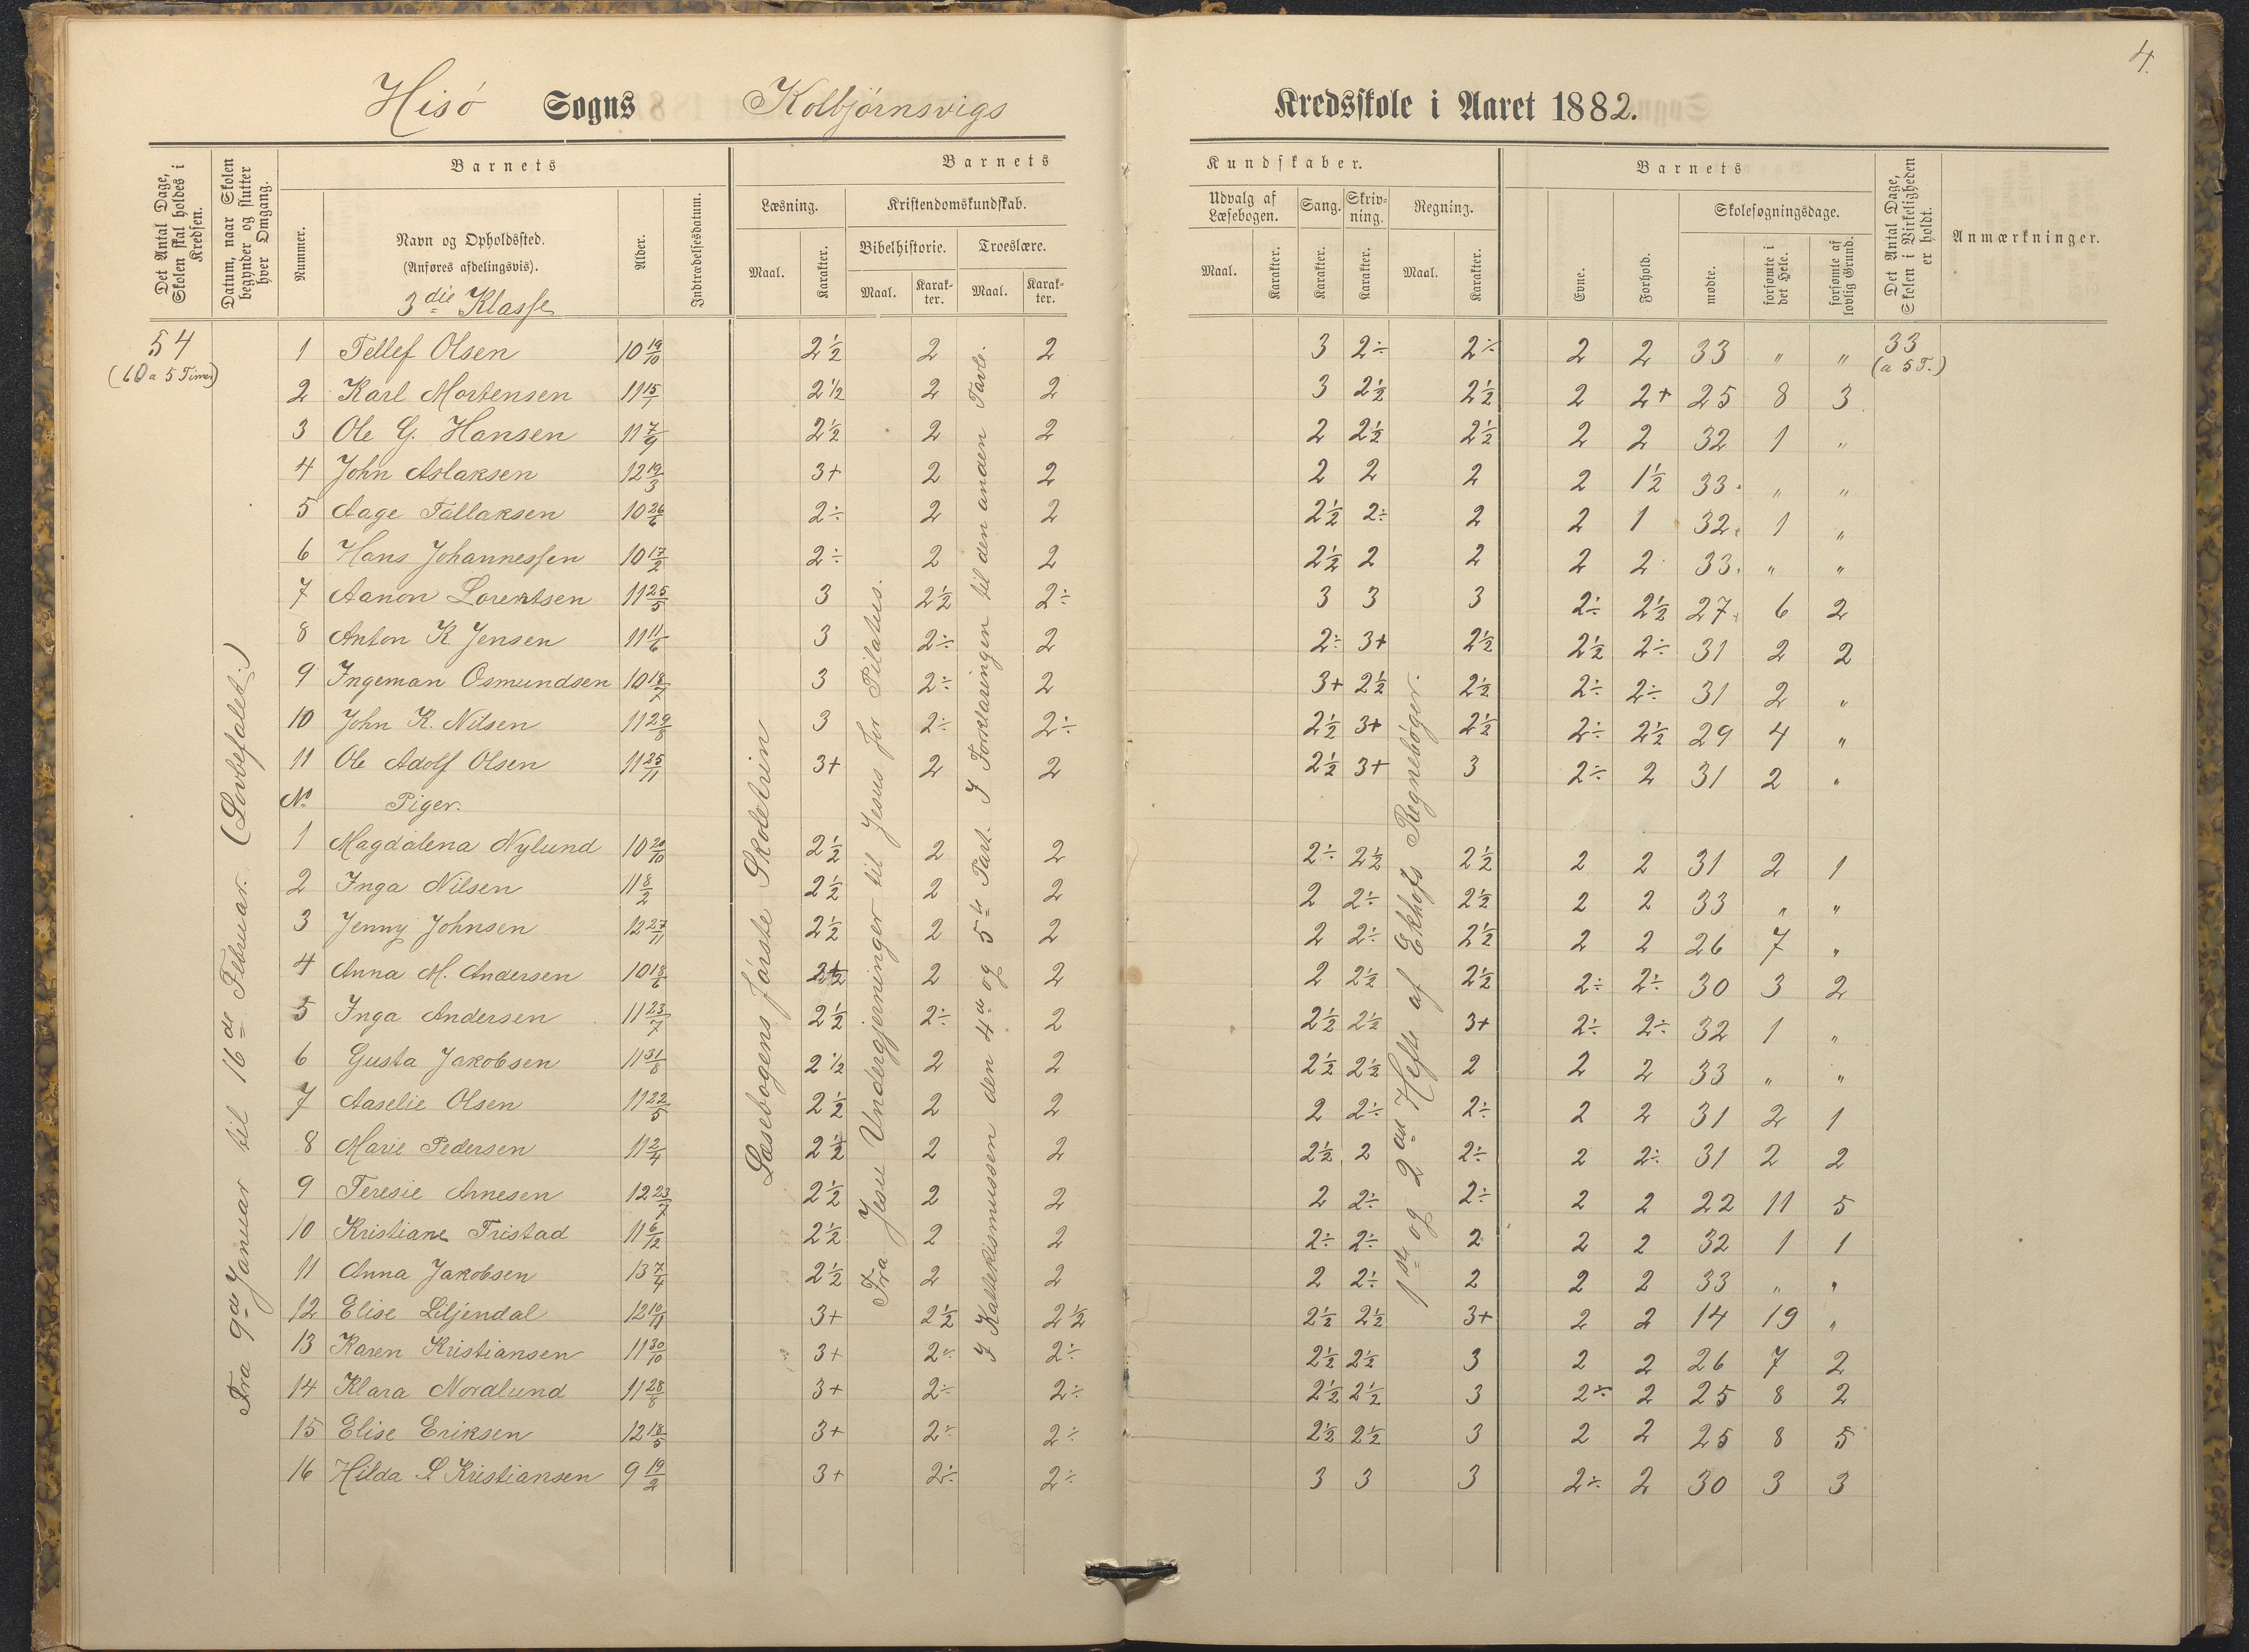 4.
Hisö Sogns Kolbjörnsvigs Kredsskole i Aaret 1882.
Det Antal Dage, Skolen skal holdes i Kredsen.
Datum, naar Skolen begynder og slutter hver Omgang.
Barnets
Nummer.
Navn og Opholdssted.
(Anføres afdelingsvis).
3die Klasse
Alder.
Indtrædelsesdatum.
Barnets Kundskaber.
Læsning.
Maal.
Karakter.
Kristendomskundskab.
Bibelhistorie.
Maal.
Karakter.
Troeslære.
Maal.
Karakter.
Udvalg af Læsebogen.
Maal.
Karakter.
Sang.
Karakter.
Skrivning.
Karakter.
Regning.
Maal.
Karakter.
Barnets
Evne.
Forhold.
Skolesøgningsdage.
mødte.
forsømte i det Hele.
forsømte af lovlig Grund.
Det Antal Dage, Skolen i Virkeligheden er holdt.
Anmærkninger.
54
(60 a 5 Timer)
Fra 9de Januar til 16de Februar. (Lovbefalet.)
Læsebogens første Skoletrin
Fra Jesu Undergjerninger til Jesus for Pilatus.
I Kattekismussen den 4de og 5te Part. I Forklaringen til den anden Tavle.
1ste og 2det Hefte af Ekhofs Regnebøger.
33
(a 5 T.)
1 Tellef Olsen 10 19/10 2½ 2 2 3 2÷ 2÷ 2 2 33 " "
2 Karl Mortensen 11 15/1 2½ 2 2 3 2½ 2½ 2 2+ 25 8 3
3 Ole G. Hansen 11 7/9 2½ 2 2 2 2½ 2½ 2 2 32 1 "
4 John Aslaksen 12 19/3 3+ 2 2 2 2 2 2 1½ 33. " "
5 Aage Tallaksen 10 26/6 2÷ 2 2 2½ 2÷ 2 2 1 32. 1 "
6 Hans Johannessen 10 17/2 2÷ 2 2 2½ 2 2 2 2 33. " "
7 Aanon Lorentsen 11 25/5 3 2½ 2÷ 3 3 3 2÷ 2½ 27. 6 2
8 Anton K. Jensen 11 11/6 3 2÷ 2 2÷ 3+ 2½ 2½ 2÷ 31 2 2
9 Ingeman Osmundsen 10 18/7 3 2÷ 2 3+ 2½ 2½ 2÷ 2÷ 31 2 "
10 John K. Nilsen 11 29/8 3 2÷ 2÷ 2½ 3+ 2½ 2÷ 2½ 29 4 "
11 Ole Adolf Olsen 11 25/11 3+ 2 2 2½ 3+ 3 2÷ 2 31 2 "
No Piger.
1 Magdalena Nylund 10 20/10 2½ 2 2 2÷ 2½ 2½ 2 2 31 2 1
2 Inga Nilsen 11 8/2 2½ 2 2 2 2÷ 2½ 2 2 33 " "
3 Jenny Johnsen 12 27/11 2½ 2 2 2 2÷ 2½ 2 2 26 7 "
4 Anna M. Andersen 10 18/6 2½ 2 2 2 2½ 2½ 2÷ 2÷ 30 3 2
5 Inga Andersen 11 23/7 2½ 2÷ 2 2½ 2½ 3+ 2÷ 2÷ 32 1 "
6 Gusta Jakobsen 11 31/8 2½ 2 2 2½ 2½ 2 2 2 33 " "
7 Aaselie Olsen 11 22/5 2½ 2 2 2 2÷ 2÷ 2 2 31 2 1
8 Marie Pedersen 11 2/4 2½ 2 2 2½ 2 2÷ 2 2÷ 31 2 2
9 Teresie Arnesen 12 23/7 2½ 2 2 2 2÷ 2÷ 2 2 22 11 5
10 Kristiane Fristad 11 6/12 2½ 2 2 2÷ 2÷ 2 2 2 32 1 1
11 Anna Jakobsen 13 7/4 2½ 2 2 2 2÷ 2 2 2 33 " "
12 Elise Liljendal 12 10/11 3+ 2½ 2½ 2½ 2½ 3+ 2 2 14 19 "
13 Karen Kristiansen 11 30/10 3+ 2÷ 2÷ 2½ 2½ 3 2 2 26 7 2
14 Klara Nordlund 11 28/8 3+ 2÷ 2÷ 2½ 2½ 3 2÷ 2 25 8 2
15 Elise Eriksen 12 18/5 3+ 2÷ 2÷ 2½ 2½ 3 2 2 25 8 5
16 Hilda S. Kristiansen 9 19/2 3+ 2÷ 2÷ 3 3 3 2÷ 2 30 3 3